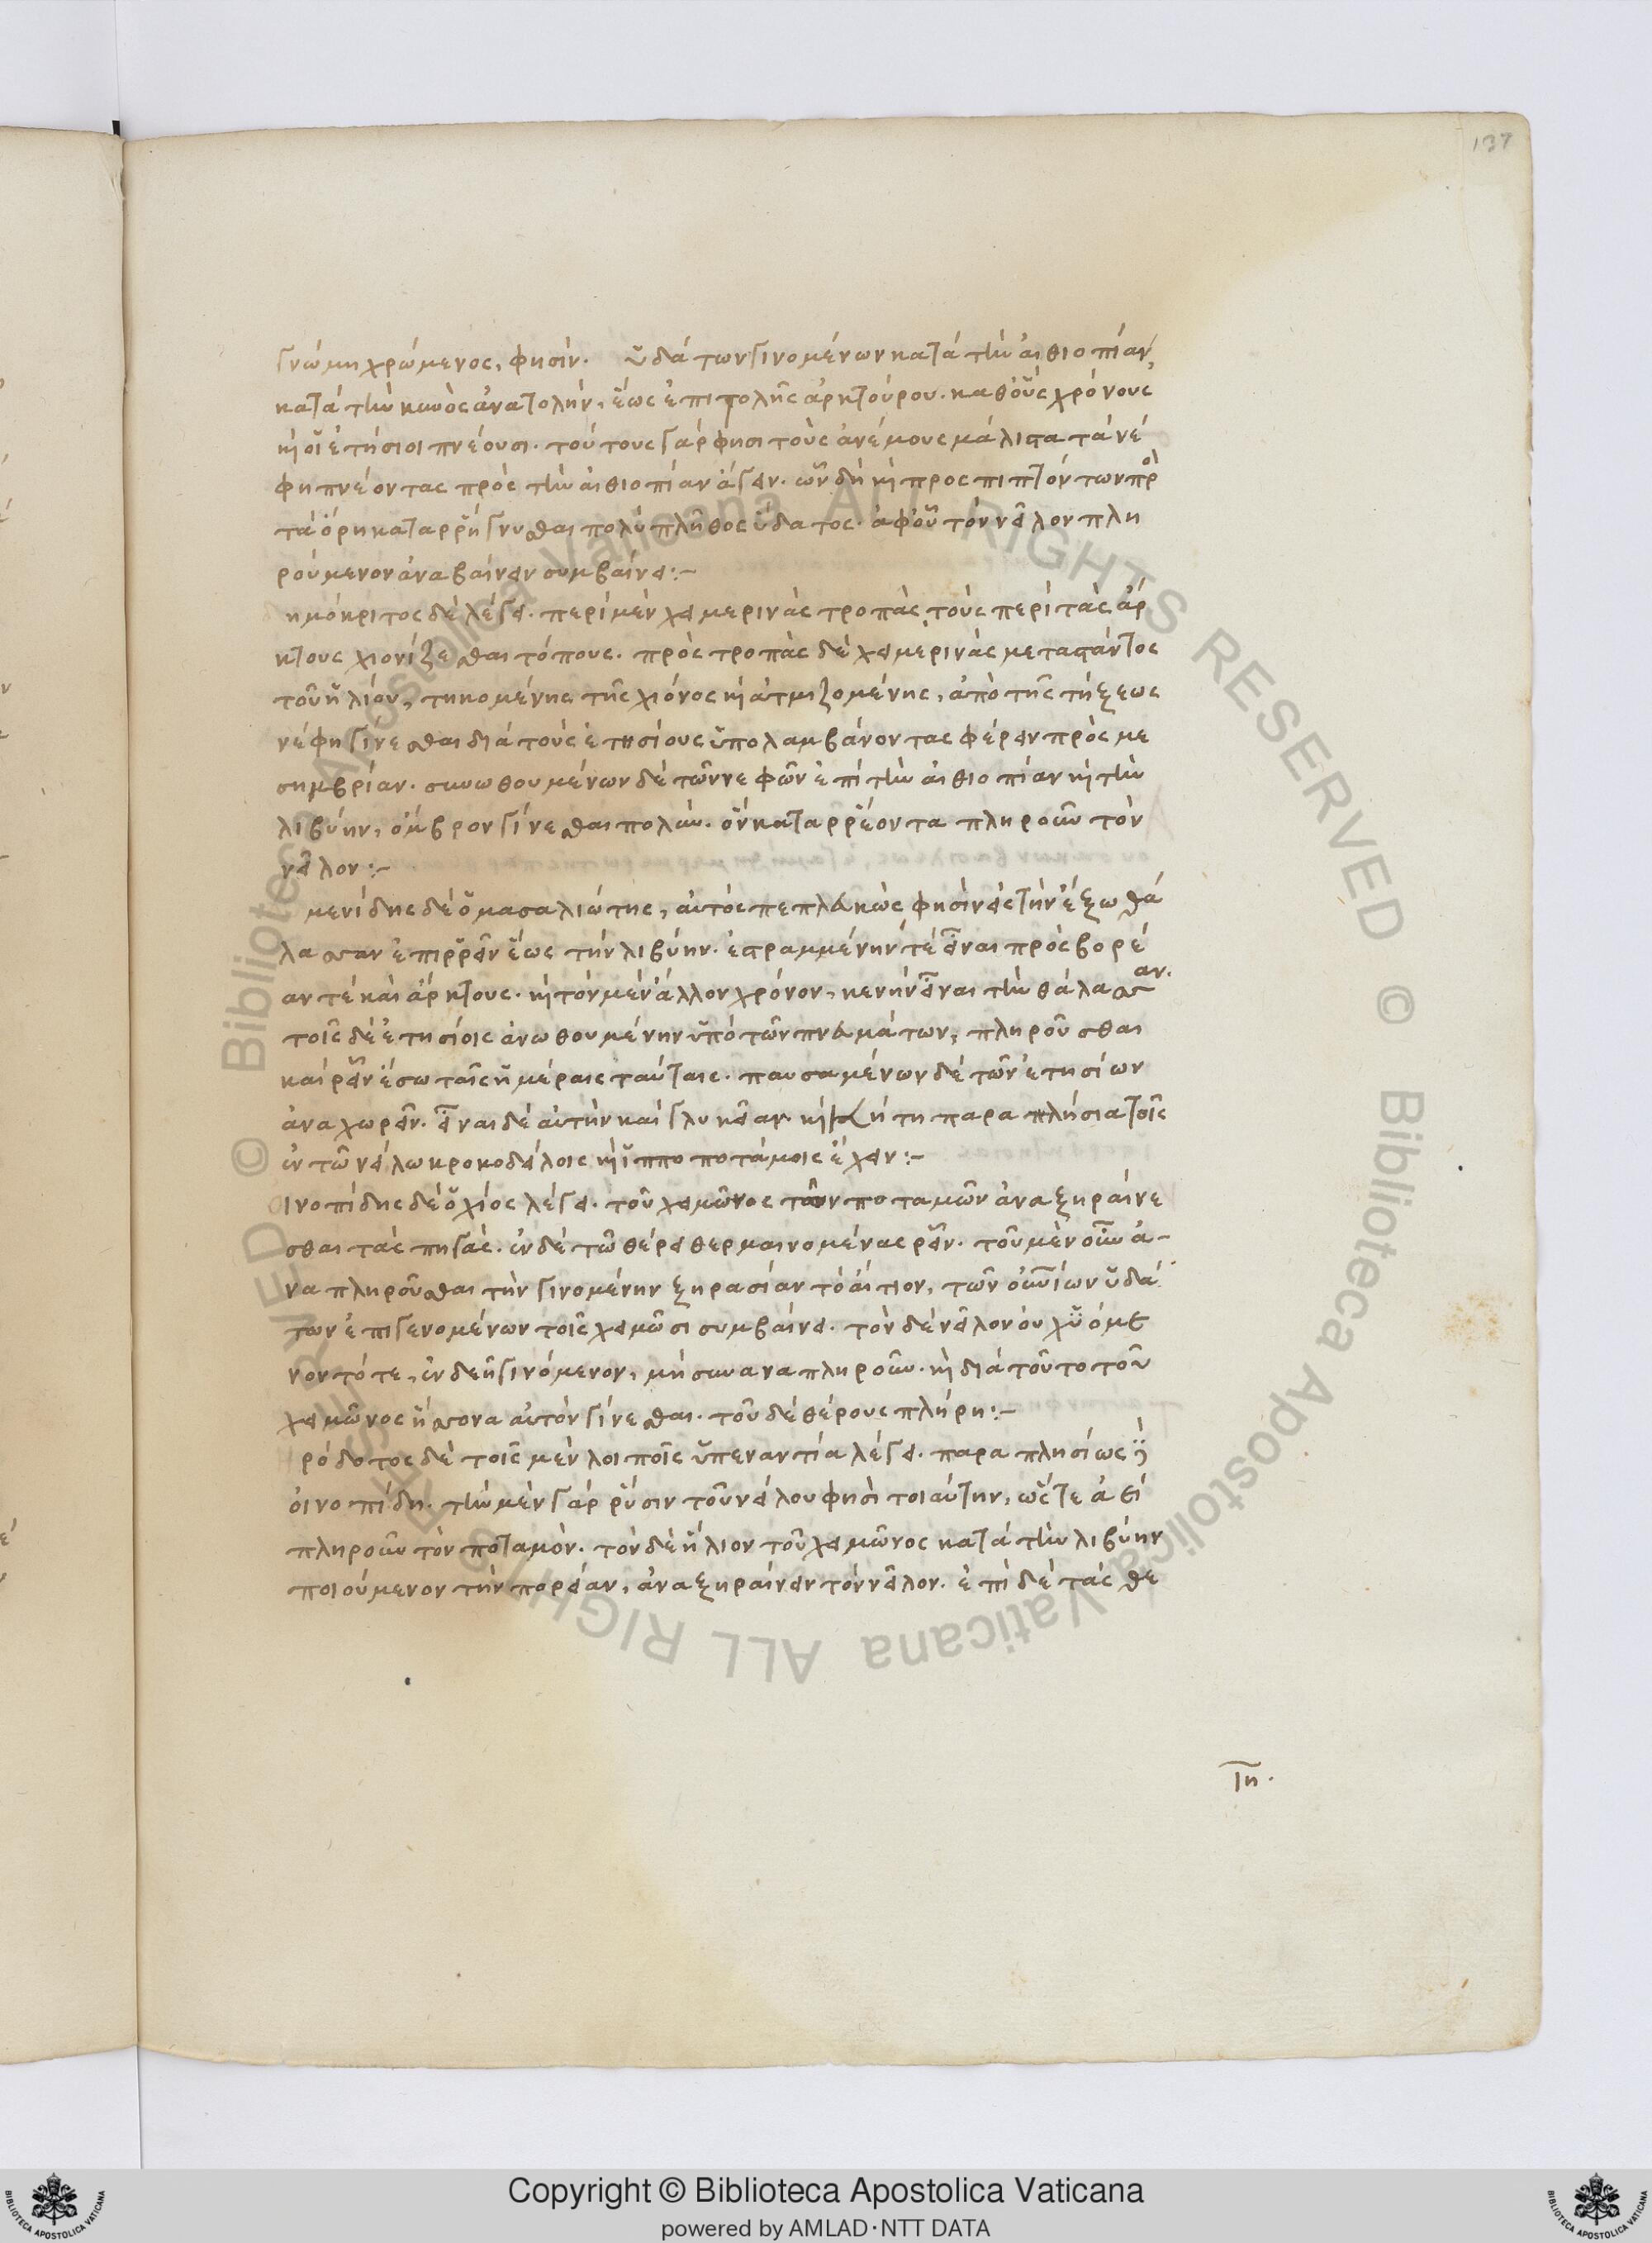 137
γνώμη χρώμενος, φησίν. ὑδάτων γινομένων κατὰ τὴν αἰθιοπίαν,
κατὰ τὴν κυνὸς ἀνατολὴν, ἕως ἐπιτολῆς ἀρκτούρου. καθ' οὓς χρόνους
κ οἱ ἐτήσιοι πνέουσι. τούτους γάρ φησι τοὺς ἀνέμους μάλιστα τὰ νέ
φη πνέοντας πρὸς τὴν αἰθιοπίαν ἄγειν. ὧν δὴ κ προσπιπτόντων πρὸ
τὰ ὄρη καταρρήγνυσθαι πολὺ πλῆθος ὕδατος. ἀφ' οὗ τὸν νεῖλον πλη
ρούμενον ἀναβαίνειν συμβαίνει:-
ημόκριτος δὲ λέγει. περὶ μὲν χειμερινὰς τροπὰς τοὺς περὶ τὰς ἄρ
κτους χιονίζεσθαι τόπους. πρὸς τροπὰς δὲ χειμερινὰς μεταστάντος
τοῦ ἡλίου, τηκομένης τῆς χιόνος κ ἀτμιζομένης, ἀπὸ τῆς τήξεως
νέφη γίνεσθαι διὰ τοὺς ἐτησίους ὑπολαμβάνοντας φέρειν πρὸς με
σημβρίαν. συνωθουμένων δὲ τῶν νεφῶν ἐπὶ τὴν αἰθιοπίαν κ τὴν
λιβύην, ὄμβρον γίνεσθαι πολύν. ὃν καταρρέοντα πληροῦν τὸν
νεῖλον:-
μενίδης δὲ ὁ μασαλιώτης, αὐτὸς πεπλευκὼς φησὶν εἰς τὴν ἔξω θά
λασσαν ἐπιρρεῖν ἕως τὴν λιβύην. ἐστραμμένην τὲ εἶναι πρὸς βορέ
αν τὲ καὶ ἄρκτους. κ τὸν μὲν ἄλλον χρόνον, κενὴν εἶναι τὴν θάλασσαν.
τοῖς δὲ ἐτησίοις ἀνωθουμένην ὑπὸ τῶν πνευμάτων, πληροῦσθαι
καὶ ρεῖν ἔσω ταῖς ἡμέραις ταύταις. παυσαμένων δὲ τῶν ἐτησίων
ἀναχωρεῖν. εἶναι δὲ αὐτὴν καὶ γλυκεῖαν κ κήτη παραπλήσια τοῖς
ἐν τῶ νείλω κροκοδείλοις κ ἱπποποτάμοις ἔχειν:-
ινοπίδης δὲ ὁ χίος λέγει. τοῦ χειμῶνος τῶν ποταμῶν ἀναξηραίνε
σθαι τὰς πηγάς. ἐν δὲ τῶ θέρει θερμαινομένας ρεῖν. τοῦ μὲν οὖν ἀ-
ναπληροῦσθαι τὴν γινομένην ξηρασίαν τὸ αἴτιον, τῶν οὐνίων ὑδά
των ἐπιγενομένων τοῖς χειμῶσι συμβαίνει. τὸν δὲ νεῖλον οὐχ ὑόμε
νον τότε, ἐνδεῆ γινόμενον, μὴ συναναπληροῦν. κ διὰ τοῦτο τοῦ
χειμῶνος ἥσσονα αὐτὸν γίνεσθαι. τοῦ δὲ θέρους πλήρη:-
ρόδοτος δὲ τοῖς μὲν λοιποῖς ὑπεναντία λέγει. παραπλησίως
οἰνοπίδη. τὴν μὲν γὰρ ρύσιν τοῦ νείλου φησὶ τοιαύτην, ὥστε ἀεὶ
πληροῦν τὸν ποταμὸν. τὸν δὲ ἥλιον τοῦ χειμῶνος κατὰ τὴν λιβύην
ποιούμενον τὴν πορείαν, ἀναξηραίνειν τὸν νεῖλον. ἐπὶ δὲ τὰς θε
ιη.
Copyright © Biblioteca Apostolica Vaticana
powered by AMLAD·NTT DATA